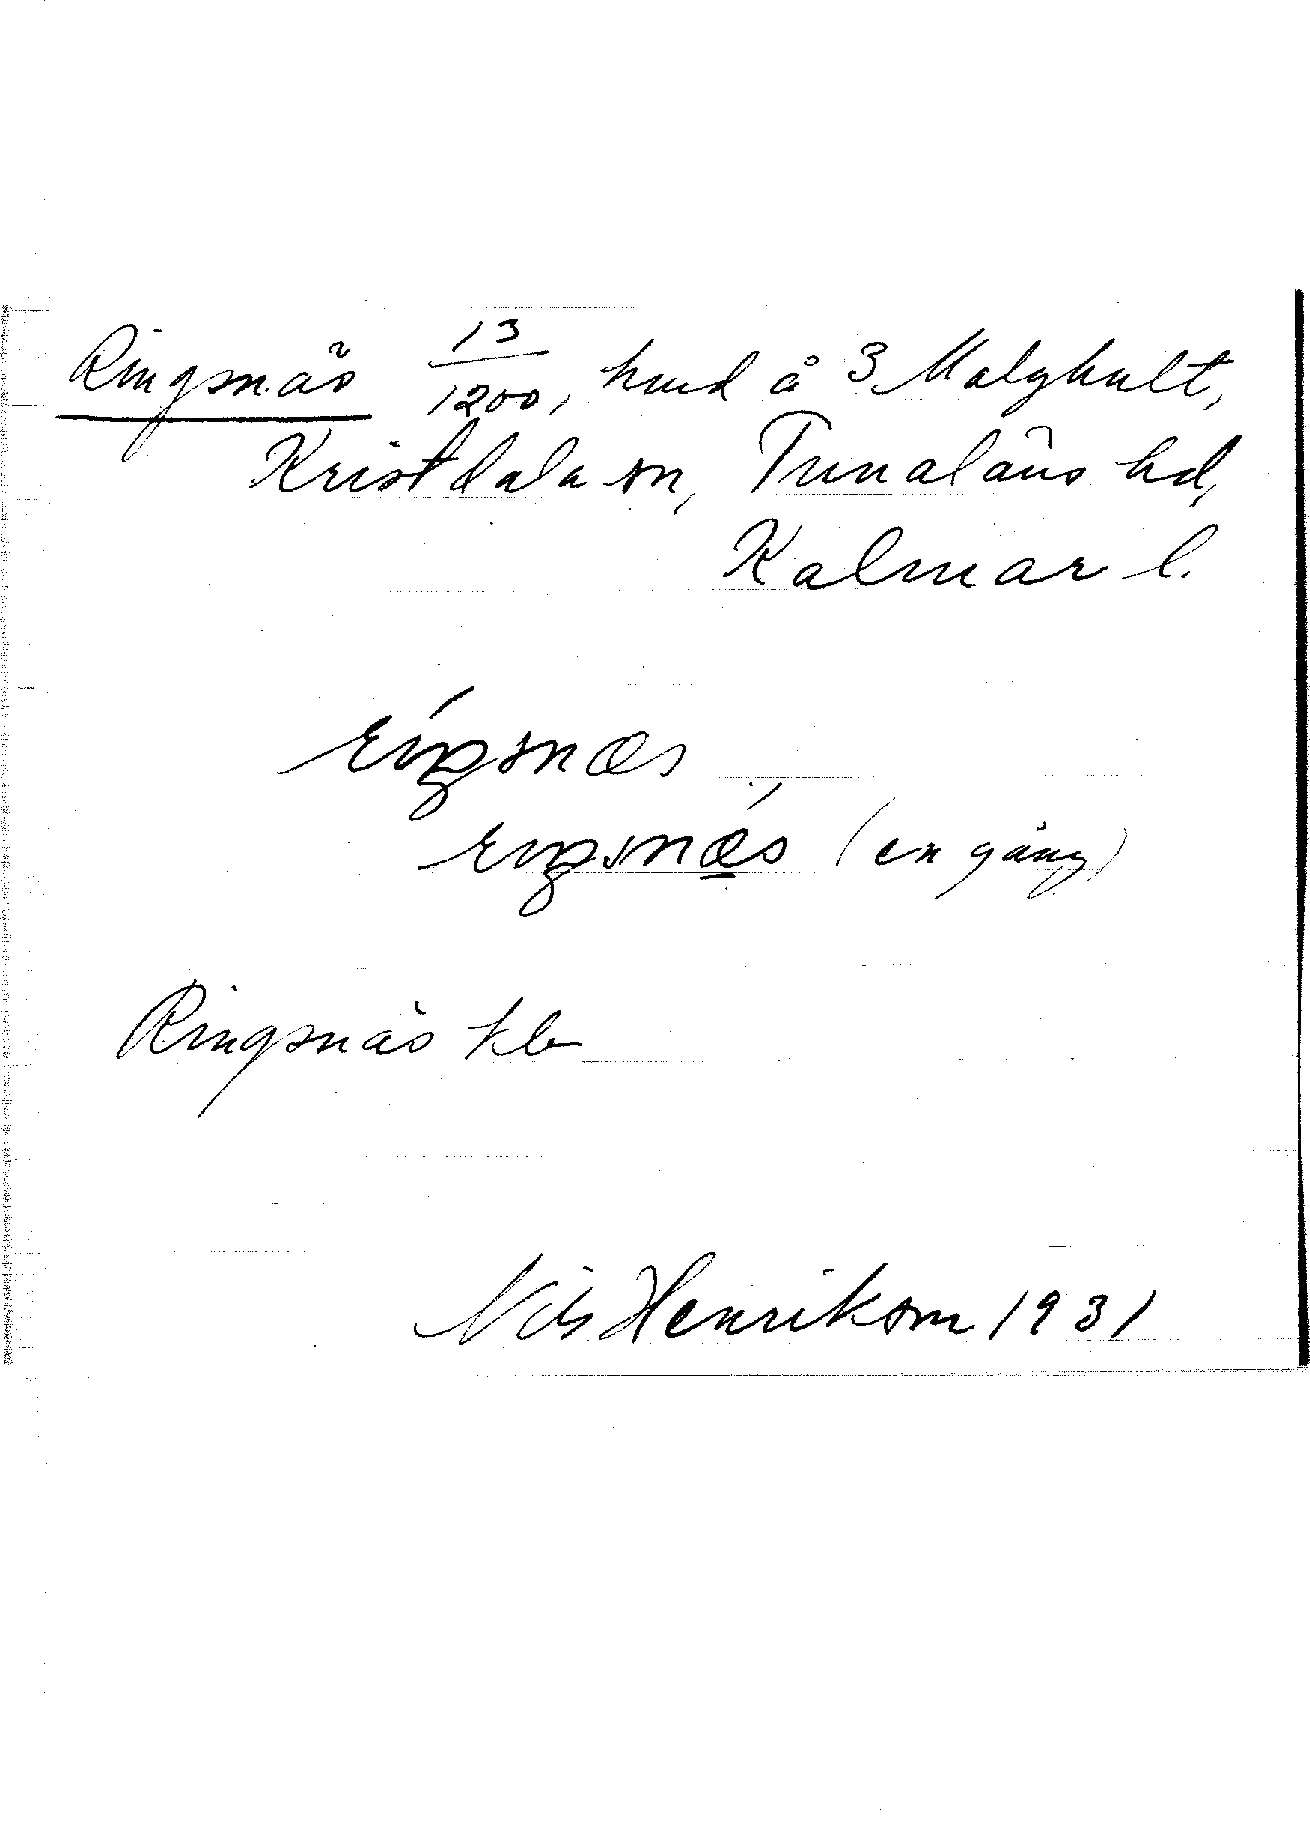 Ringsnäs 13/1200, hmd å 3 Malghult,
Kristdala sn, Tunaläns hd,
Kalmar l.
ríŋsnæs
riŋsnǽs (en gång)
Ringsnäs kb
Nils Henriksson 1931